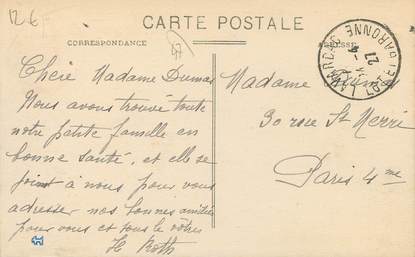 12 €
CARTE POSTALE
CORRESPONDANCE
ADRESSE
47
27 - 4
LOT ET GARONNE
Chère Madame Dumas
Nous avons trouvé toute
notre petite famille en
bonne santé, et elle se
joint à nous pour vous
adresser nos bonnes amitiés
pour vous et tous le vôtres
H Roth
Madame Dumas
30 rue St Merri
Paris 4me